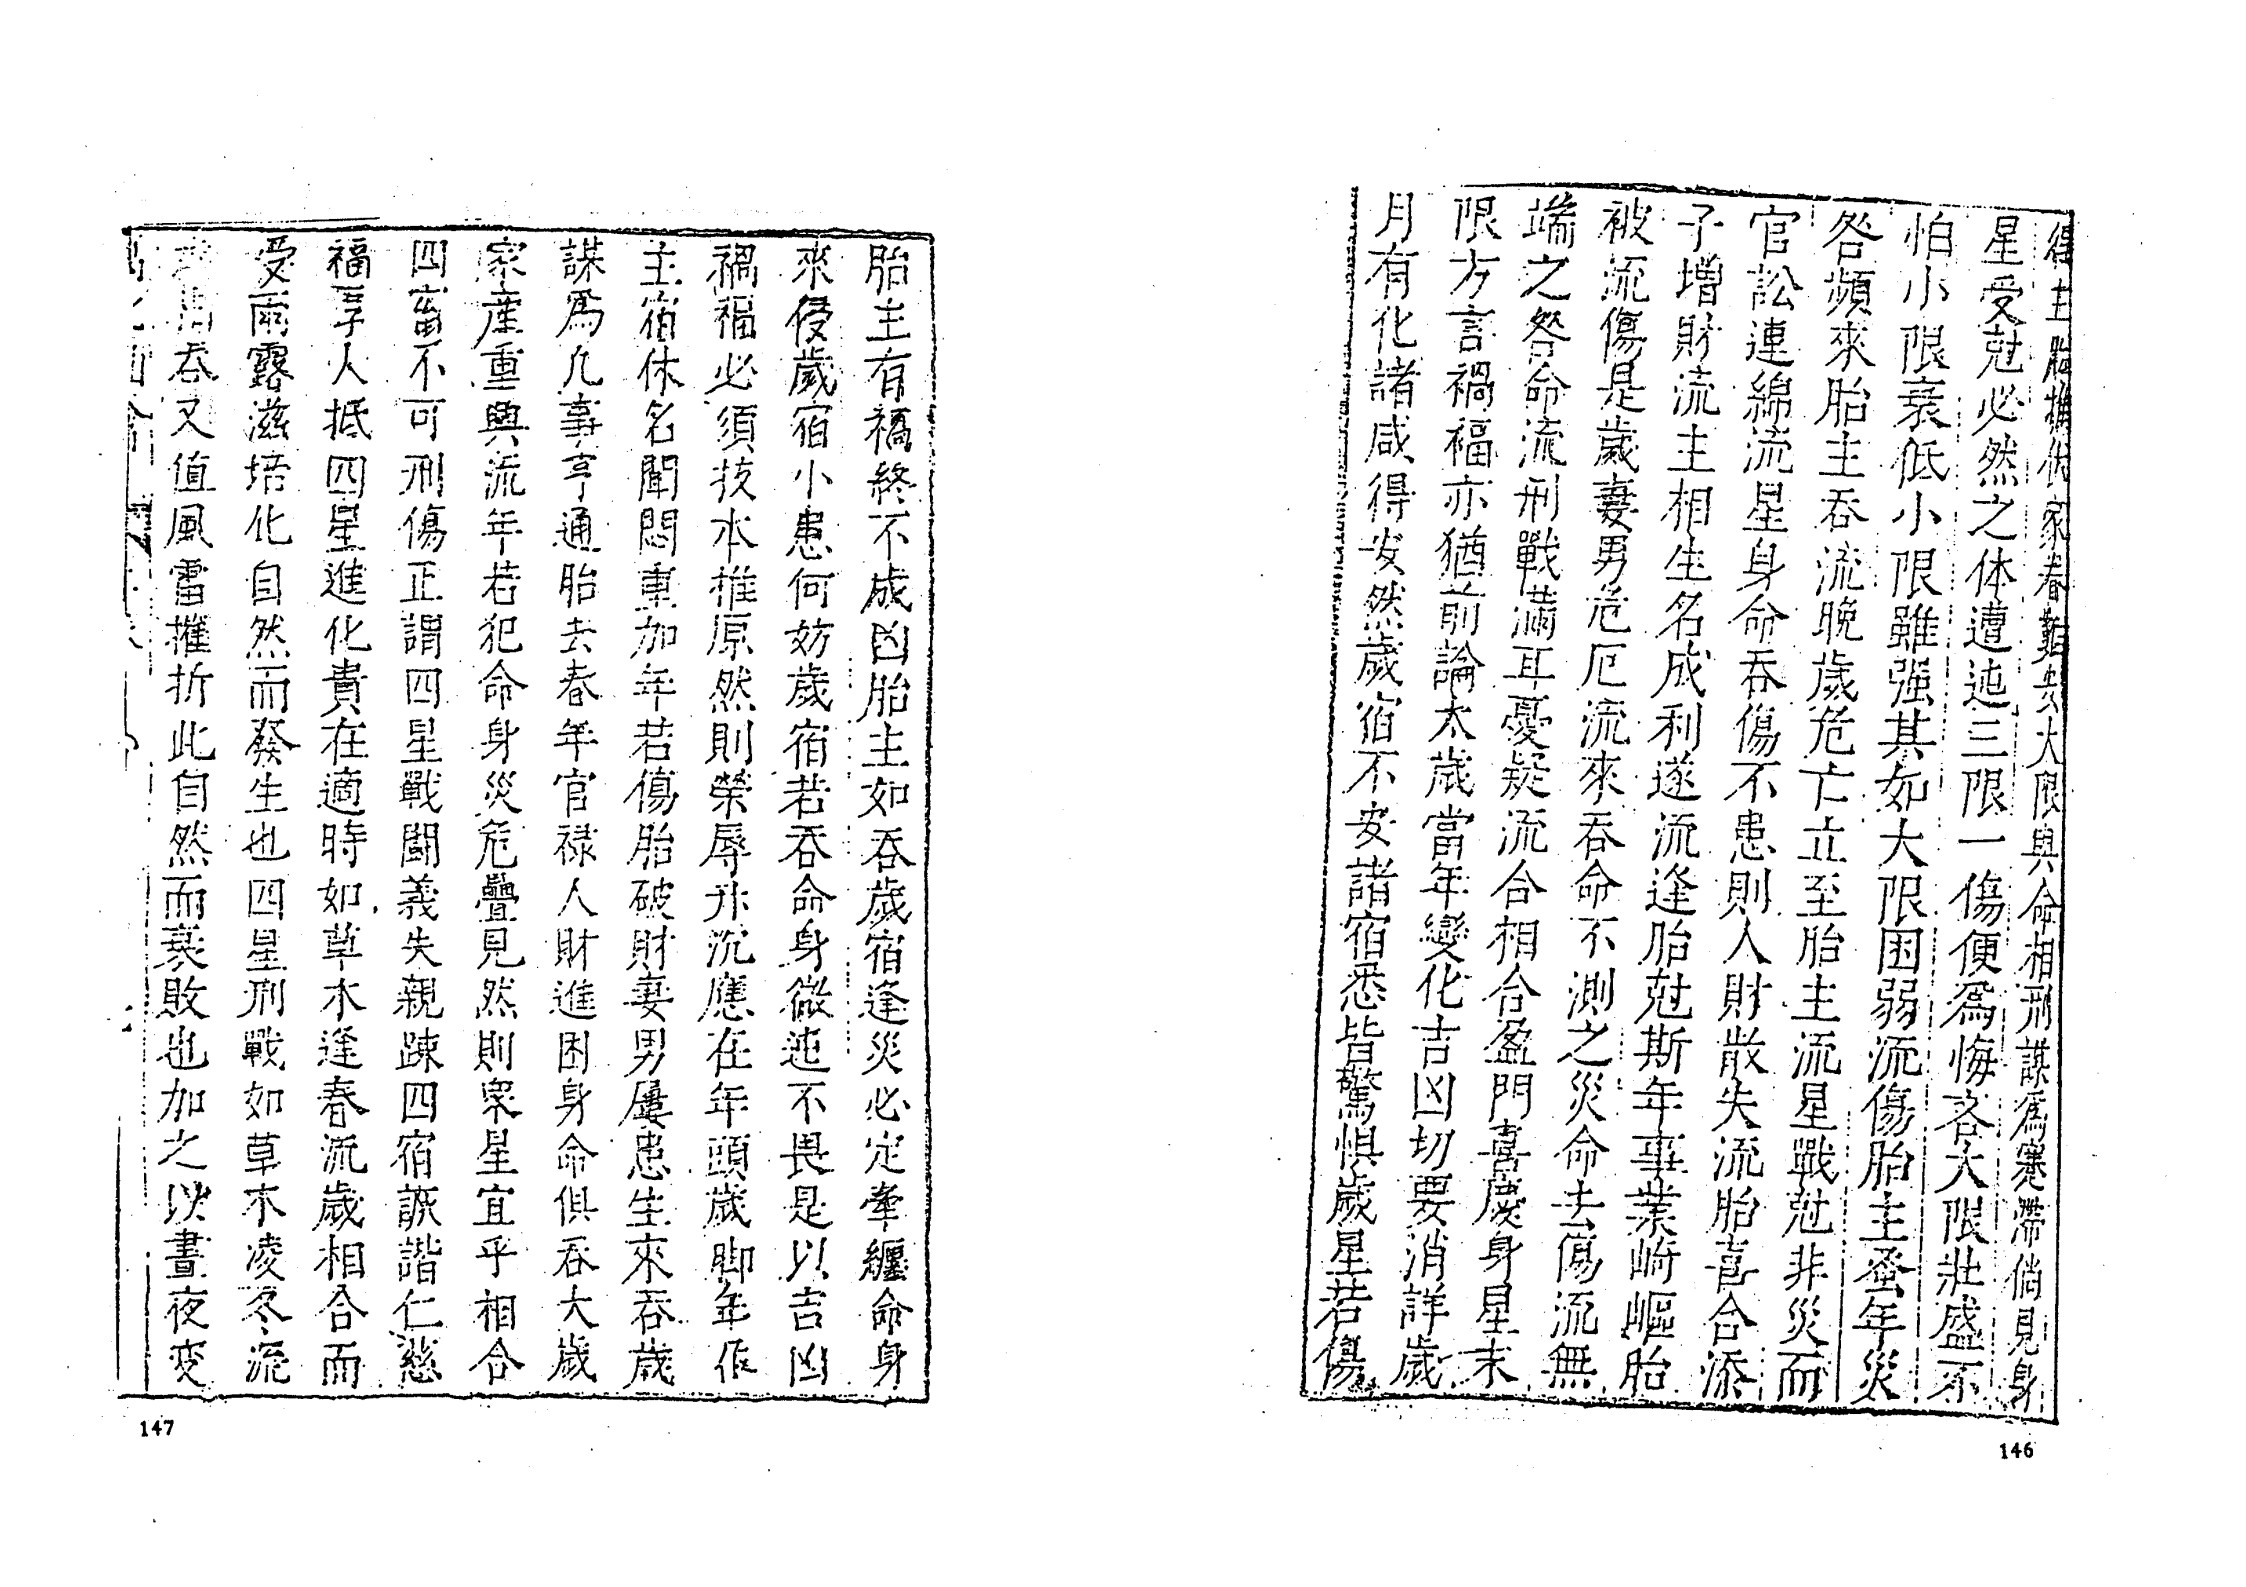 主胎 家春 大限與命相刑謀爲蹇滯倘見身
星受尅必然之体遭迍三限一傷便爲悔吝大限壯盛不
怕小限衰低小限雖强其如大限困弱流傷胎主蚤年災
咎頻來胎主吞流晚歲危亡立至胎主流星戰尅非災而
官訟連綿流星身命吞傷不患則人財散失流胎喜合添
子增財流主相生名成利遂流逢胎尅斯年事業崎嶇胎
被流傷是歲妻男危厄流來吞命不測之災命去傷流無
端之咎命流刑戰滿耳憂疑流合相合盈門喜慶身星末
限方言禍福亦猶前論太歲當年變化吉凶切要消詳歲
月有化諸咸得安然歲宿不安諸宿悉皆驚惧歲星若傷
胎主有禍終不成凶胎主如吞歲宿逢災必定牽纏命身
來侵歲宿小患何妨歲宿若吞命身微迍不畏是以吉凶
禍福必須技本推原然則榮辱升沉應在年頭歲脚年作
主宿休名聞悶重加年若傷胎破財妻男屢患生來吞歲
謀爲凢事亨通胎去春年官禄人財進困身命俱吞大歲
家産重興流年若犯命身災危疊見然則衆星宜乎相合
四畜不可刑傷正謂四星戰闘義失親踈四宿諏諧仁慈
福享人抵四星進化貴在適時如草木逢春流歲相合而
受雨露滋培化自然而發生也四星刑戰如草木凌冬流
吞又值風雷摧折此自然而衰敗也加之以晝夜变
147
146